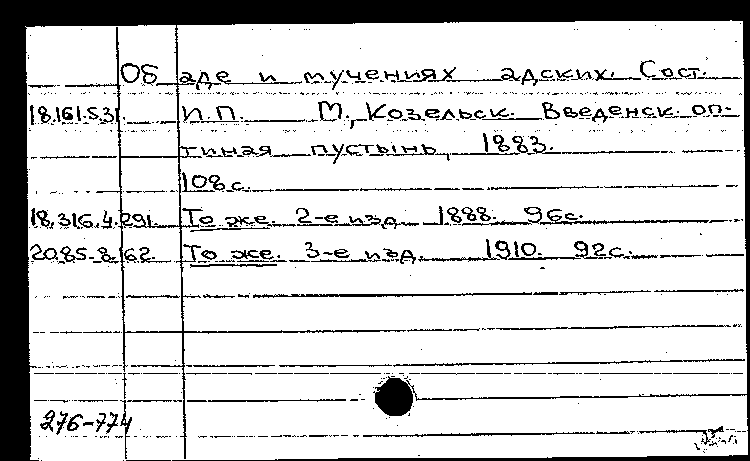 Об аде и мучениях адских. Сост.
18.161.5.31. И.П. М., Козельск. Введенск. оп-
тиная пустынь, 1883.
108 с.
18.316.4.291. То же. 2-е изд. 1888. 96 с.
20.85.8.162 То же. 3-е изд. 1910. 92 с.
276-774